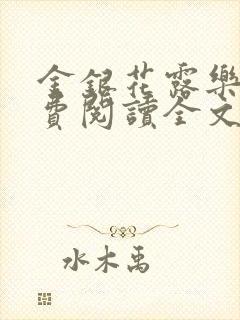 金銀花露樂
費閱讀全文
水木禹